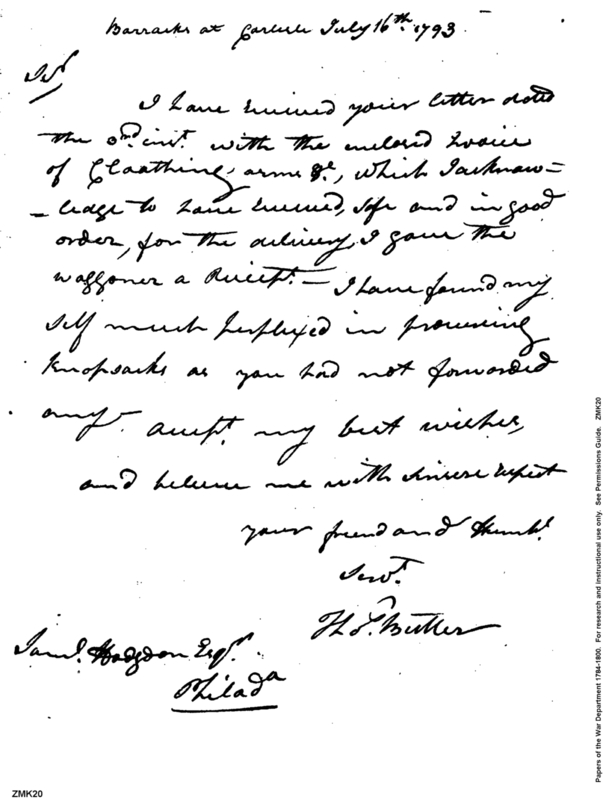 Barracks at Carlisle July 16th. 1793.
Sir
I have received your letter dated
the 3rd. inst. with the enclosed Invoice
of Cloathing, arms &c, which I acknow=
=ledge to have received, safe and in good
order, for the delivery, I gave the
waggoner a Receipt. — I have found my
self much perplexed in procuring
Knapsacks as you had not forwarded
any — accept. my best wishes,
and believe me with sincere respect
your friend and Humbl.
Servt.
Thos. Butler
Saml. Hodgdon Esqr.
Philada
ZMK20
Papers of the War Department 1784-1800. For research and instructional use only. See Permissions Guide. ZMK20